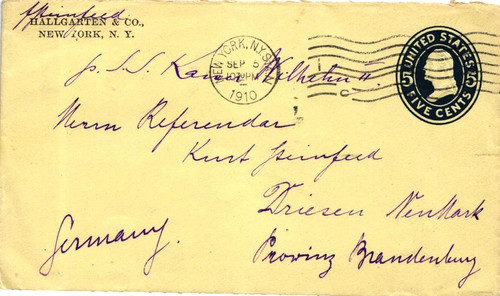 Steinfeed
HALLGARTEN & CO.,
NEW YORK, N. Y.
NEW YORK, N.Y. STA.
SEP 5
1910
UNITED STATES
5 5
FIVE CENTS
p. S.S. Kaiser Wilhelm II.
Herrn Referendar
Kurt Steinfeed
Driesen NeuMark
Germany.
Provinz Brandenburg